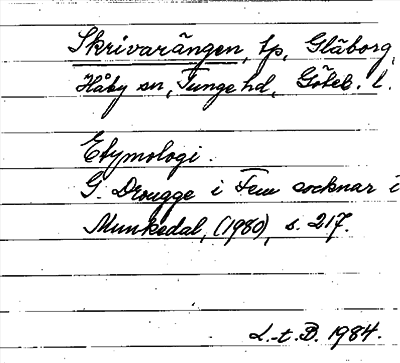 Skrivarängen, tp, Glåborg,
Håby sn, Tunge hd, Göteb. l.
Etymologi.
G. Drougge i Fem socknar i
Munkedal, (1980), s. 217.
L.-t. B. 1984.